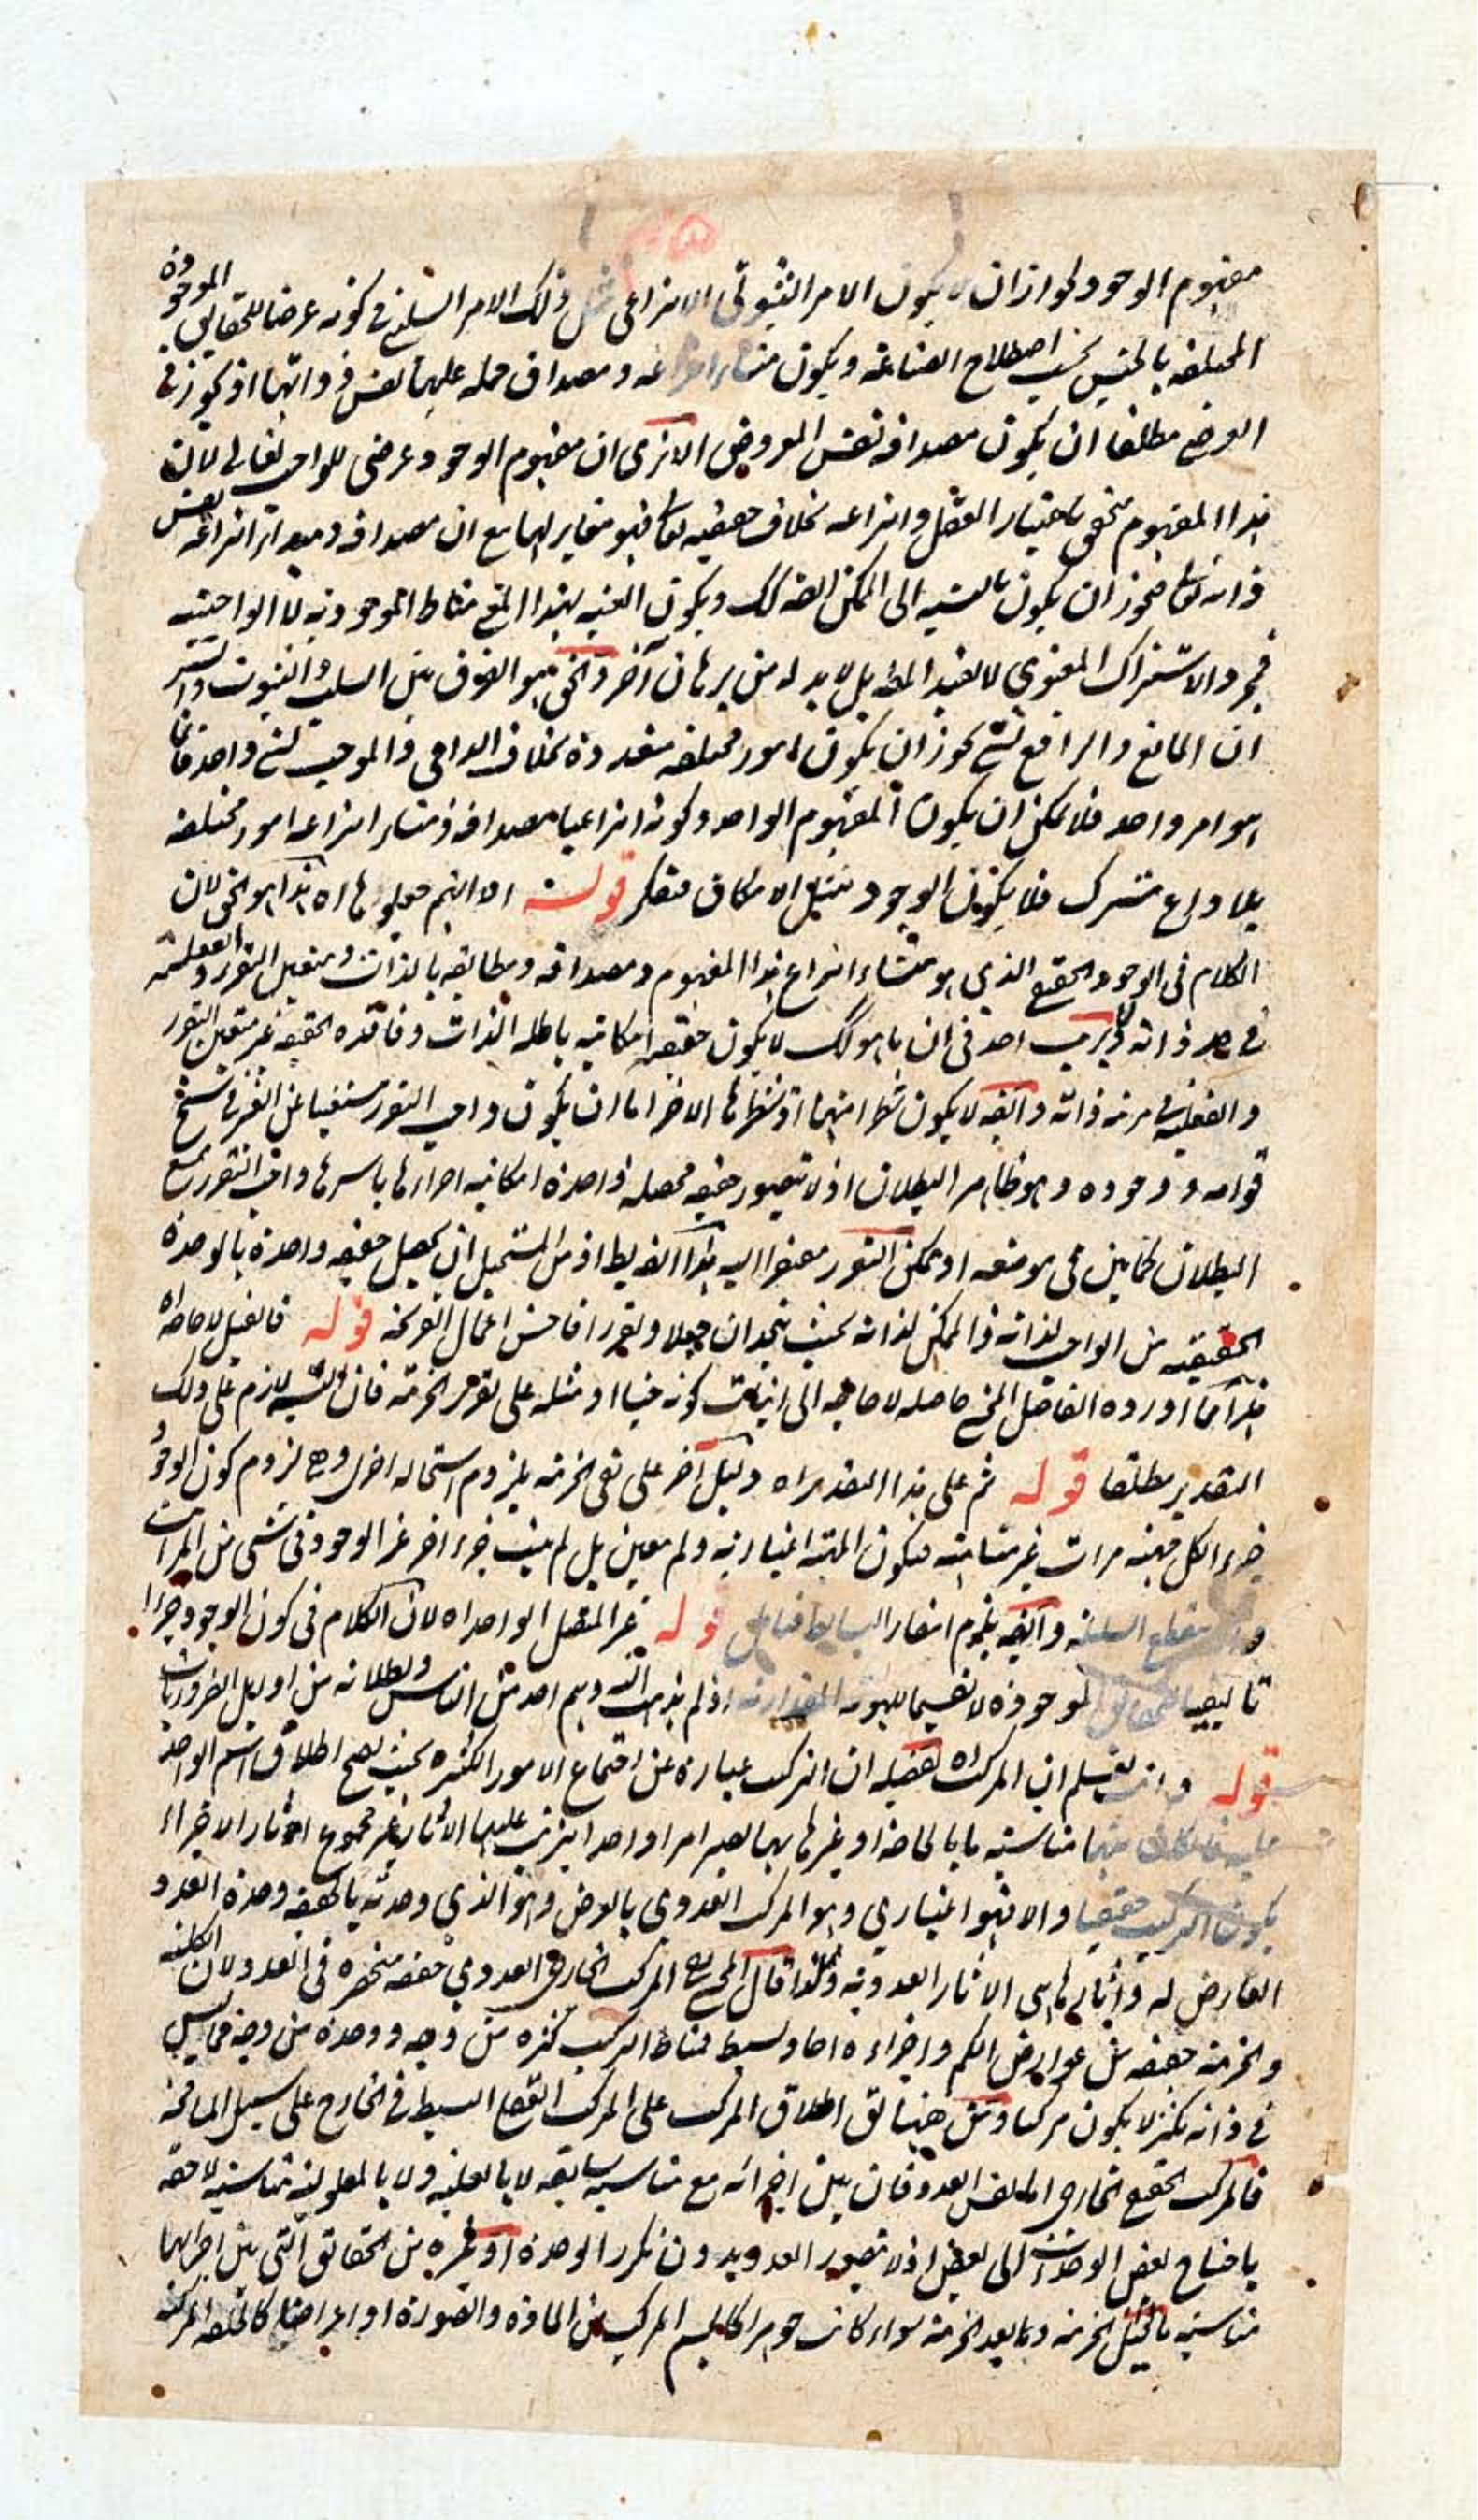 مفهوم الوجود لجواز ان لا يكون الامر الثبوتى الانتزاعى مثل ذلك الامر السلبى فى كونه عرضا للحقايق الموجودة
المختلفة بالجنس بحسب اصطلاح الصناعة ويكون منشاء انتزاعه ومصداق حمله عليها نفس ذواتها اذ يجوز فى
العرضى مطلقا ان يكون مصداقه نفس المعروض الا ترى ان مفهوم الوجود عرضى للواجب تعالى لان
هذا المفهوم متحقق باعتبار العقل وانتزاعه بخلاف حقيقته تعالى فهو مغاير لها مع ان مصداقه ومبدأ انتزاعه نفس
ذاته تعالى فيجوز ان يكون بالنسبة الى الممكن ايضا كك ويكون العينية بهذا المعنى مناط الموجودية لا الواجبية
فمجرد الاشتراك المعنوى لا يفيد المط بل لا بد له من برهان آخر والحق هو الفرق بين السلب والثبوت والسر
ان المانع والرافع لشئ يجوز ان يكون امور مختلفة متعددة بخلاف الداعى والموجب لشئ واحد فانما
هو امر واحد فلا يمكن ان يكون المفهوم الواحد وكونه انتزاعيا مصداقه ومنشاء انتزاعه امور مختلفة
بلا داع مشترك فلا يكون الوجود مثل الامكان فتفكر قوله الا انهم جعلوها اه هذا هو الحق لان
الكلام فى الوجود الحقيقى الذى هو منشاء انتزاع هذا المفهوم ومصداقه ومطابقه بالذات ومتعين التقرر والفعلية
فى حد ذاته لا يريب احد فى ان ما هو كك لا يكون حقيقة امكانية باطلة الذات وفاقدة الحقيقة غير متعين التقرر
والفعلية فى مرتبة ذاته وايضا لا يكون شطرا منها اذ شطرها الاخر اما ان يكون واجب التقرر مستغنيا عن الغير فى سنخ
قوامه ووجوده وهو ظاهر البطلان اذ لا يتصور حقيقة محصلة واحدة امكانية اجزاءها باسرها واجب التقرر مع
البطلان كما بين فى موضعه او ممكن التقرر مفتقرا اليه هذا ايضا بط اذ من المستحيل ان يحصل حقيقة واحدة بالوحدة
الحقيقية من الواجب لذاته والممكن لذاته بحيث يتحدان جعلا وتقررا فاحسن اعمال القريحة قوله فالقيل لا حاجة اه
هذا مما اورده الفاضل المحشى حاصله لا حاجة الى اثبات كونه جنسا او مثله على تقدير الجزئية فان التسلسل لازم على ذلك
التقدير مطلقا قوله ثم على هذا التقدير اه دليل آخر على نفى الجزئية بلزوم استحالة اخرى وهى لزوم كون الوجود
جزء الكل بعينه مرات غير متناهية فيكون المهية اعتبارية ولم يتعين بل لم يثبت جزء اخر غير الوجود فى شئ من المرات
و ينقطع السلسلة وايضا يلزم انتفاء البسايط فتامل قوله غير المتصل الواحد اه لان الكلام فى كون الوجود جزءا
تاليفيا للحقائق الموجودة لا تقسيما للهوية المقدارية اذ لم يذهب اليه وهم احد من الناس وبطلانه من اوايل الضروريات
قوله وانت تعلم ان المركب اه تفصيله ان التركيب عبارة عن اجتماع الامور الكثيرة بحيث يصح اطلاق اسم الواحد
عليه فان كان بينها مناسبة ما بالحاجة او غيرها بها يصير امرا واحدا يترتب عليها الآثار غير مجموع آثار الاجزاء
يكون التركيب حقيقيا والا فهو اعتبارى وهو المركب العددى بالعرض وهو الذى وحدته بالحقيقة وحدة العدد
العارض له وآثارها هى الآثار العددية ولهذا قال المحشى المركب الخارجى العددى حقيقة منحصرة فى العدد لان الكلية
والجزئية حقيقة من عوارض الكم واجزاءه احاد وبسيط فمناط التركيب كثرة من وجه ووحدة من وجه فما ليس
فى ذاته تكثر لا يكون مركبا ومن هنا يق اطلاق المركب على المركب العقلى البسيط فى الخارج على سبيل المسامحة
فالمركب الحقيقى الخارجى اما نفس العدد فان بين اجزائه مع مناسبة سابقة لا بالعلية ولا بالمعلولية مناسبة لاحقة
باحتياج بعض الوحدات الى بعض اذ لا يتصور العدد بدون تكرر الوحدة او غيره من الحقائق التى بين اجزائها
مناسبة ما قبل الجزئية وما بعد الجزئية سواء كانت جوهرا كالجسم المركب من المادة والصورة او اعراضا كالخلقة المركبة